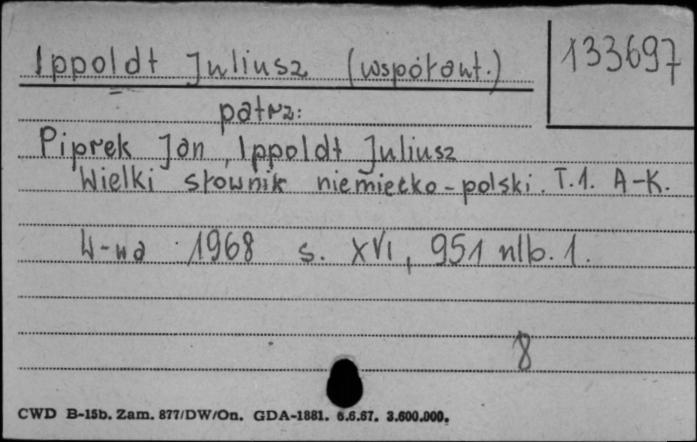 Ippoldt Juliusz (współaut.)
133697
patrz:
Piprek Jan, Ippoldt Juliusz
Wielki słownik niemiecko-polski. T.1. A-K.
W-wa 1968 s. XVI, 951 nlb. 1.
8
CWD B-15b. Zam. 877/DW/On. GDA-1881. 6.6.67. 3.600.000.